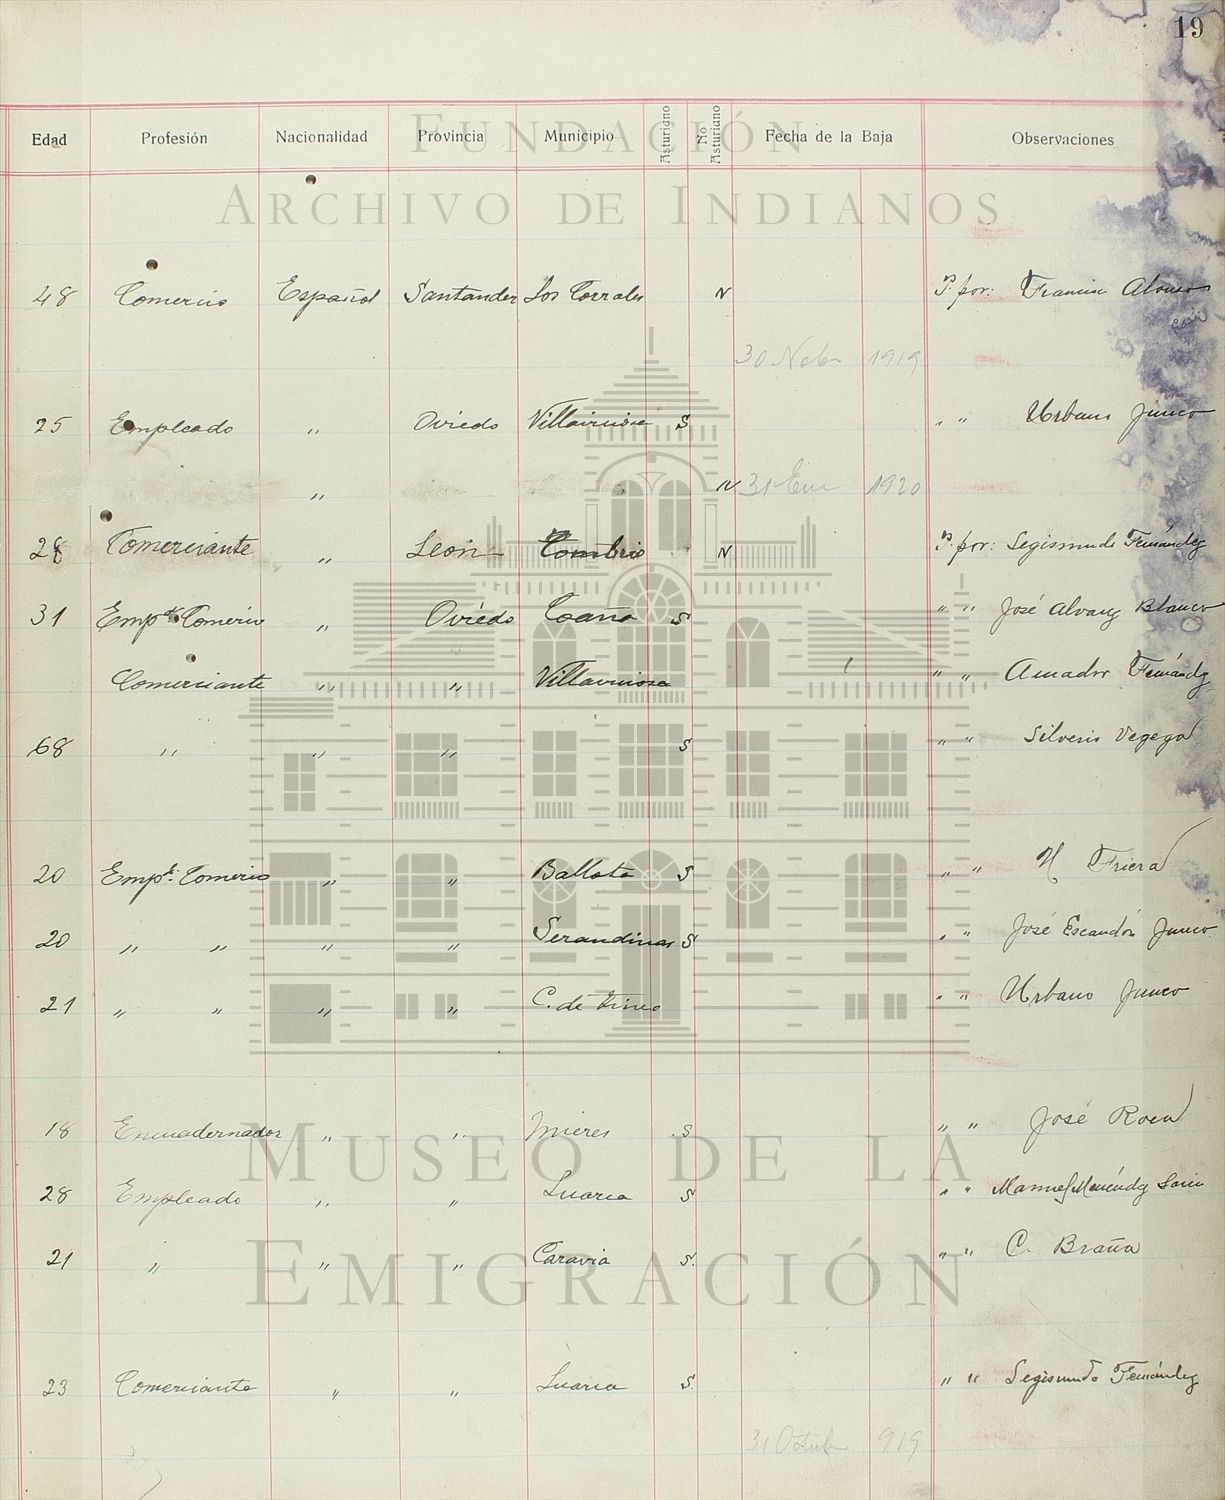 19
Edad Profesión Nacionalidad Provincia Municipio Asturiano No Asturiano Fecha de la Baja Observaciones
FUNDACIÓN
ARCHIVO DE INDIANOS
48 Comercio Español Santander Los Corrales N P. por: Alonso
30 Nobre 1919
25 Empleado " Oviedo Villaviciosa S " " Urbano Junco
" N 31 Ene 1920
28 Comerciante " León N P. por: Segismundo Fernández
31 Empdo Comercio " Oviedo Coaña S " " José Alvarez Blanco
Comerciante " " Villaviciosa " " Amador Fernández
68 " " " S " " Silverio
20 Empdo Comercio " " Ballota S " " Friera
20 " " " " Serandinas S " " José Escandón Junco
21 " " " " C. de Tineo " " Urbano Junco
18 Encuadernador " " Mieres S " " José Roca
MUSEO DE LA
28 Empleado " " Luarca S " " Manuel Menéndez
21 " " " Caravia S. " " C. Braña
EMIGRACIÓN
23 Comerciante " " Luarca S. " " Segismundo Fernández
31 Octubre 919